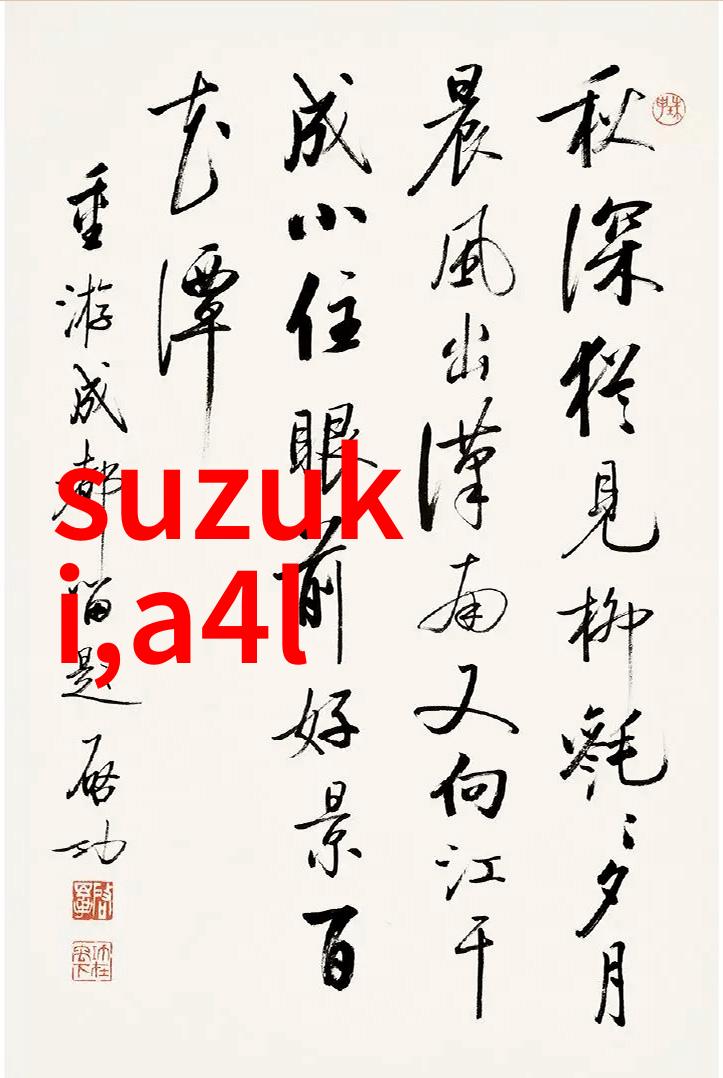 秋深猶見柳毿〻夕月
晨風出漢南又向江干
成小住眼前好景百
花潭
重游成都留题 启功
suzuk
i,a4l